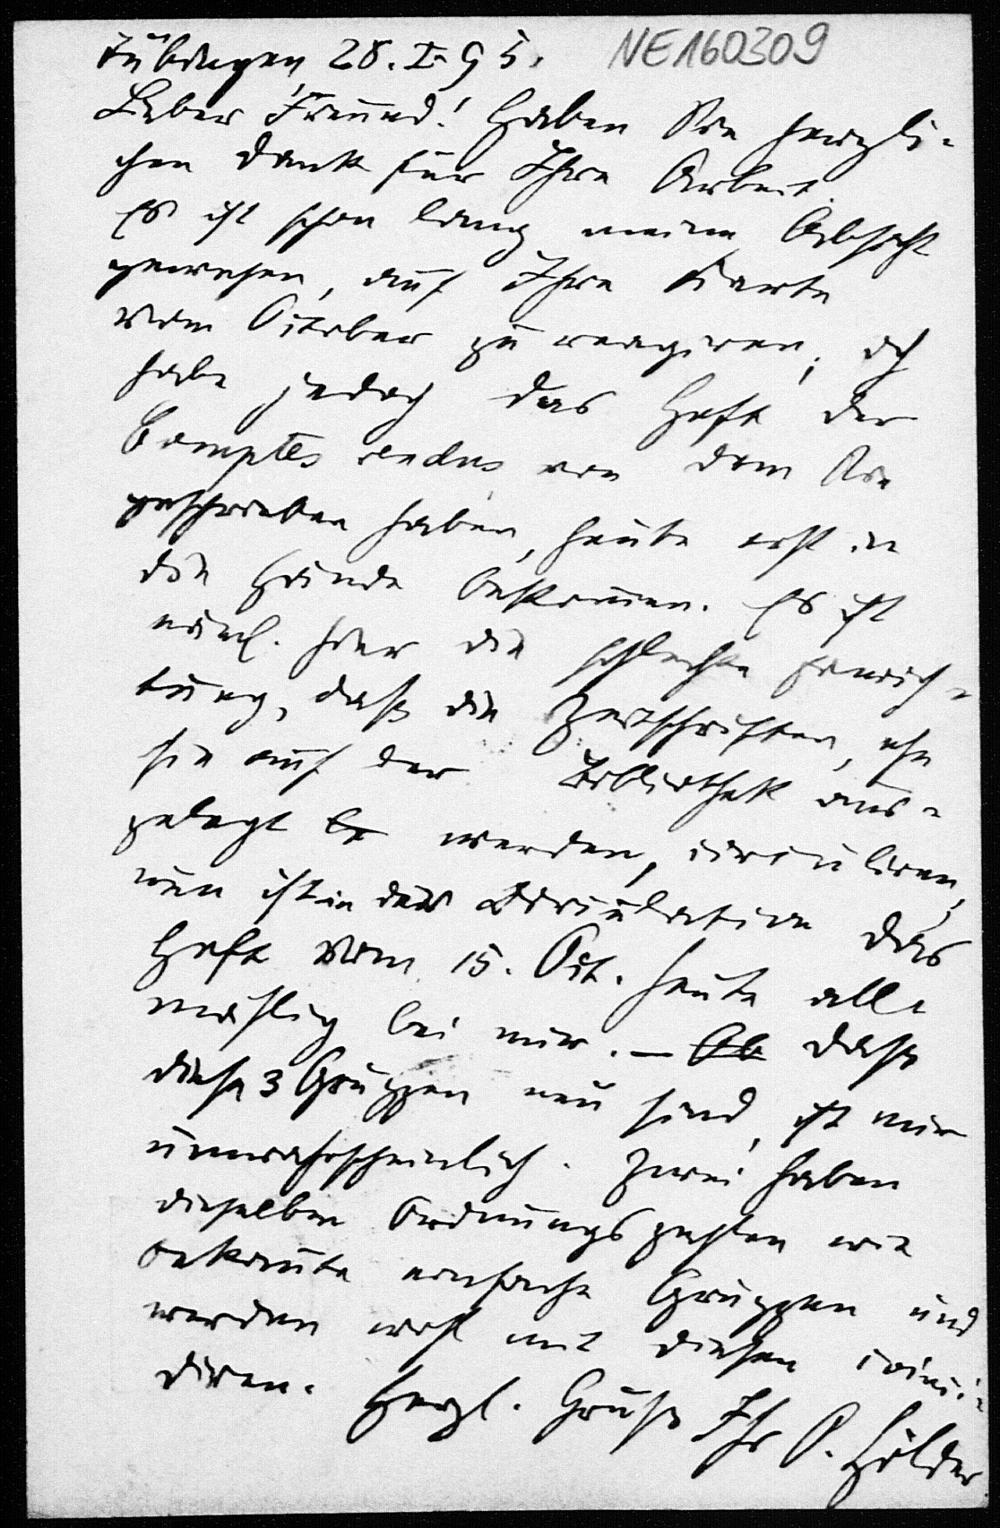 Tübingen, 28. I. 95. NE160309
Lieber Freund! Haben Sie herzli-
chen Dank für Ihre Arbeit.
Es ist schon lang meine Absicht
gewesen, auf Ihre Karte
vom October zu reagiren; ich
habe jedoch das Heft der
Comptes rendus von dem Sie
geschrieben haben, heute erst in
die Hände bekommen. Es ist
näml. hier die schlechte Einrich-
tung, daß die Zeitschriften, ehe
sie auf der Bibliothek aus-
gelegt werden, circuliren,
nun ist in der Circulation das
Heft vom 15. Oct. heute all-
mählig bei mir. — Ob daß
diese 3 Gruppen neu sind, ist mir
unwahrscheinlich. Zwei haben
dieselben Ordnungszahlen wie
bekannte einfache Gruppen und
werden wohl mit diesen coinci-
diren. Herzl. Grüße Ihr O. Hölder